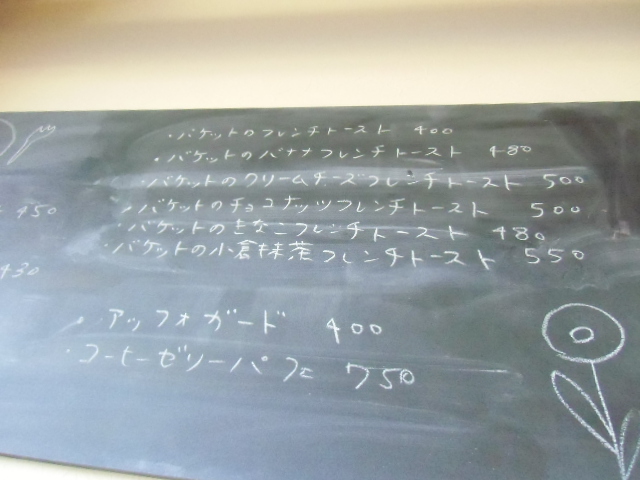 ・バケットのフレンチトースト 400
・バケットのバナナフレンチトースト 480
・バケットのクリームチーズフレンチトースト 500
450
・バケットのチョコナッツフレンチトースト 500
・バケットのきなこフレンチトースト 480
・バケットの小倉抹茶フレンチトースト 550
430
・アッフォガード 400
・コーヒーゼリーパフェ 750